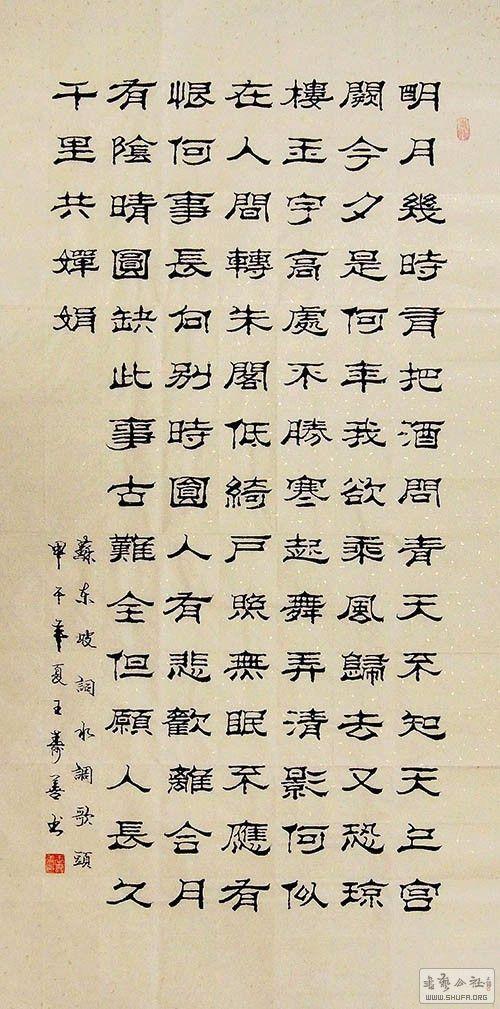 明月幾時有把酒問青天不知天上宮
闕今夕是何年我欲乘風歸去又恐瓊
樓玉宇高處不勝寒起舞弄清影何似
在人間轉朱閣低綺戶照無眠不應有
恨何事長向別時圓人有悲歡離合月
有陰晴圓缺此事古難全但願人長久
千里共嬋娟
蘇东坡詞水調歌頭
甲午年夏王壽善书
书艺公社
WWW.SHUFA.ORG